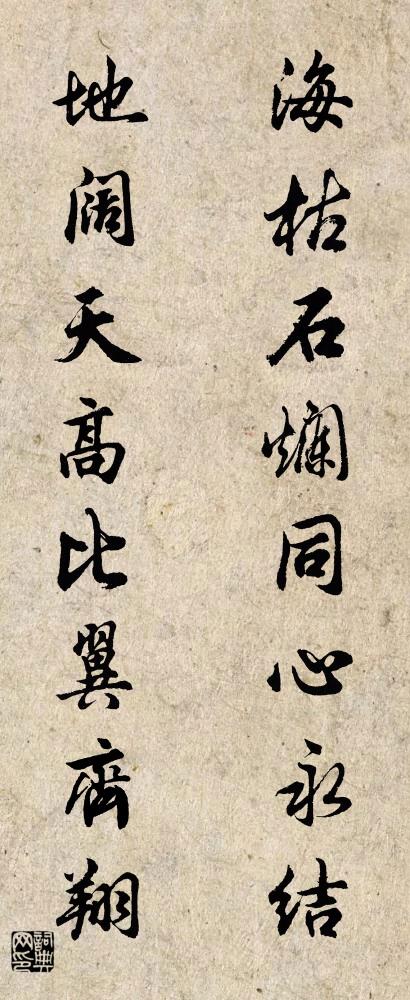 海枯石爛同心永结
地阔天高比翼齊翔
詞典网印